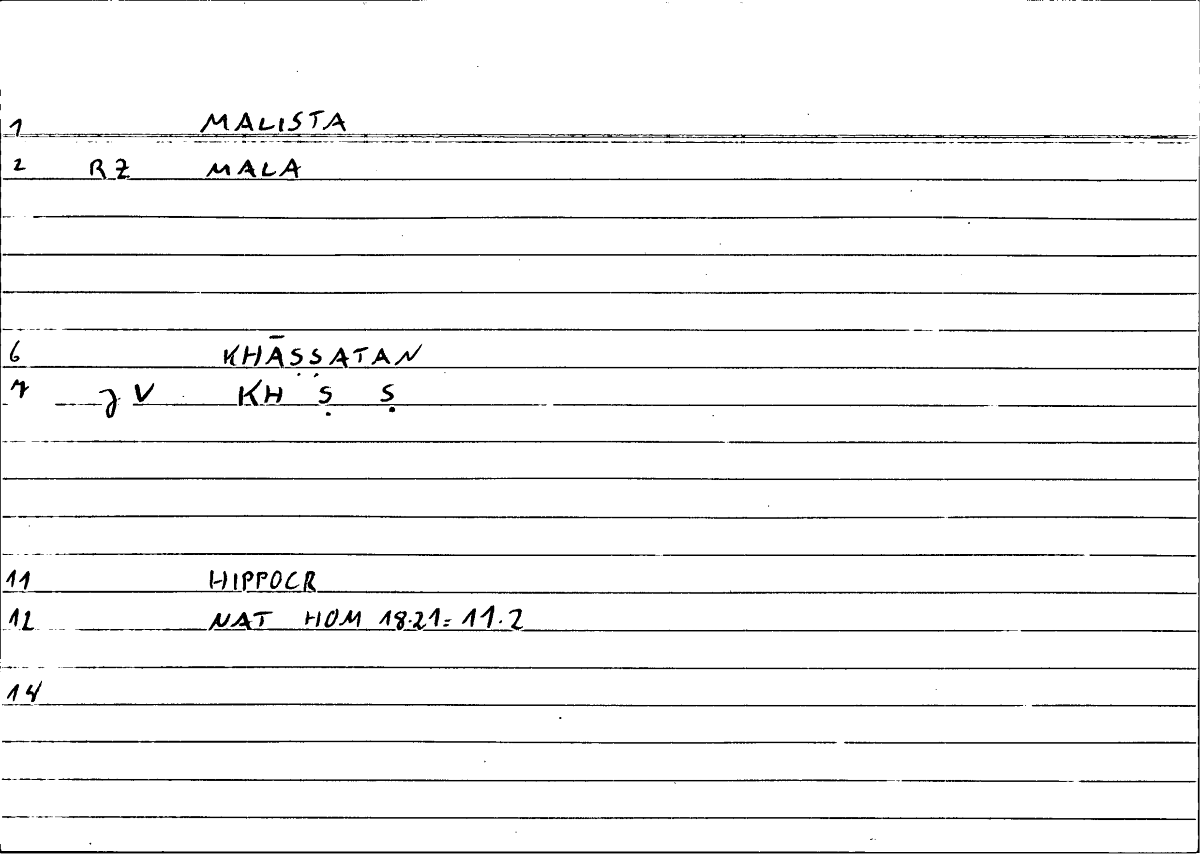 1 MALISTA
2 RZ MALA
6 KHĀṢṢATAN
7 J V KH Ṣ Ṣ
11 HIPPOCR
12 NAT HOM 18.21= 11.2
14